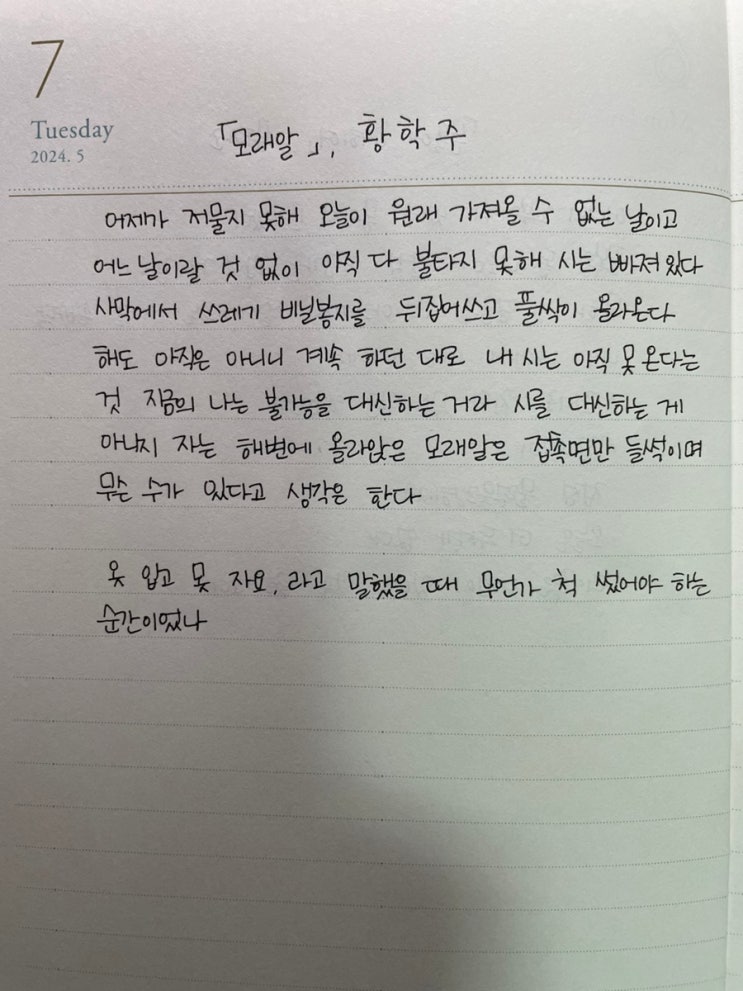 7
Tuesday
2024. 5
「모래알」, 황학주
어제가 저물지 못해 오늘이 원래 가져올 수 없는 날이고
어느 날이랄 것 없이 아직 다 불타지 못해 시는 빠져 있다
사막에서 쓰레기 비닐봉지를 뒤집어쓰고 풀싹이 올라온다
해도 아직은 아니니 계속 하던 대로 내 시는 아직 못 온다는
것 지금의 나는 불가능을 대신하는 거라 시를 대신하는 게
아니지 자는 해변에 올라앉은 모래알은 접촉면만 들썩이며
무슨 수가 있다고 생각은 한다
옷 입고 못 자요, 라고 말했을 때 무언가 척 썼어야 하는
순간이었나